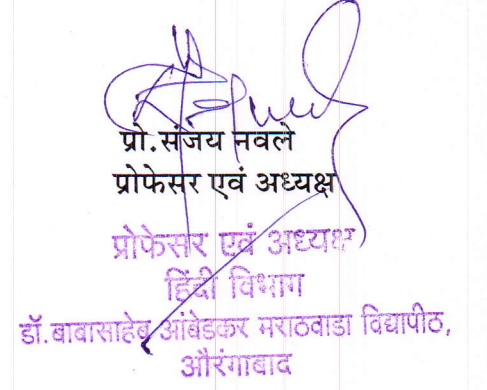 प्रो.संजय नवले
प्रोफेसर एवं अध्यक्ष
प्रोफेसर एवं अध्यक्ष
हिंदी विभाग
डॉ.बाबासाहेब आंबेडकर मराठवाडा विद्यापीठ,
औरंगाबाद